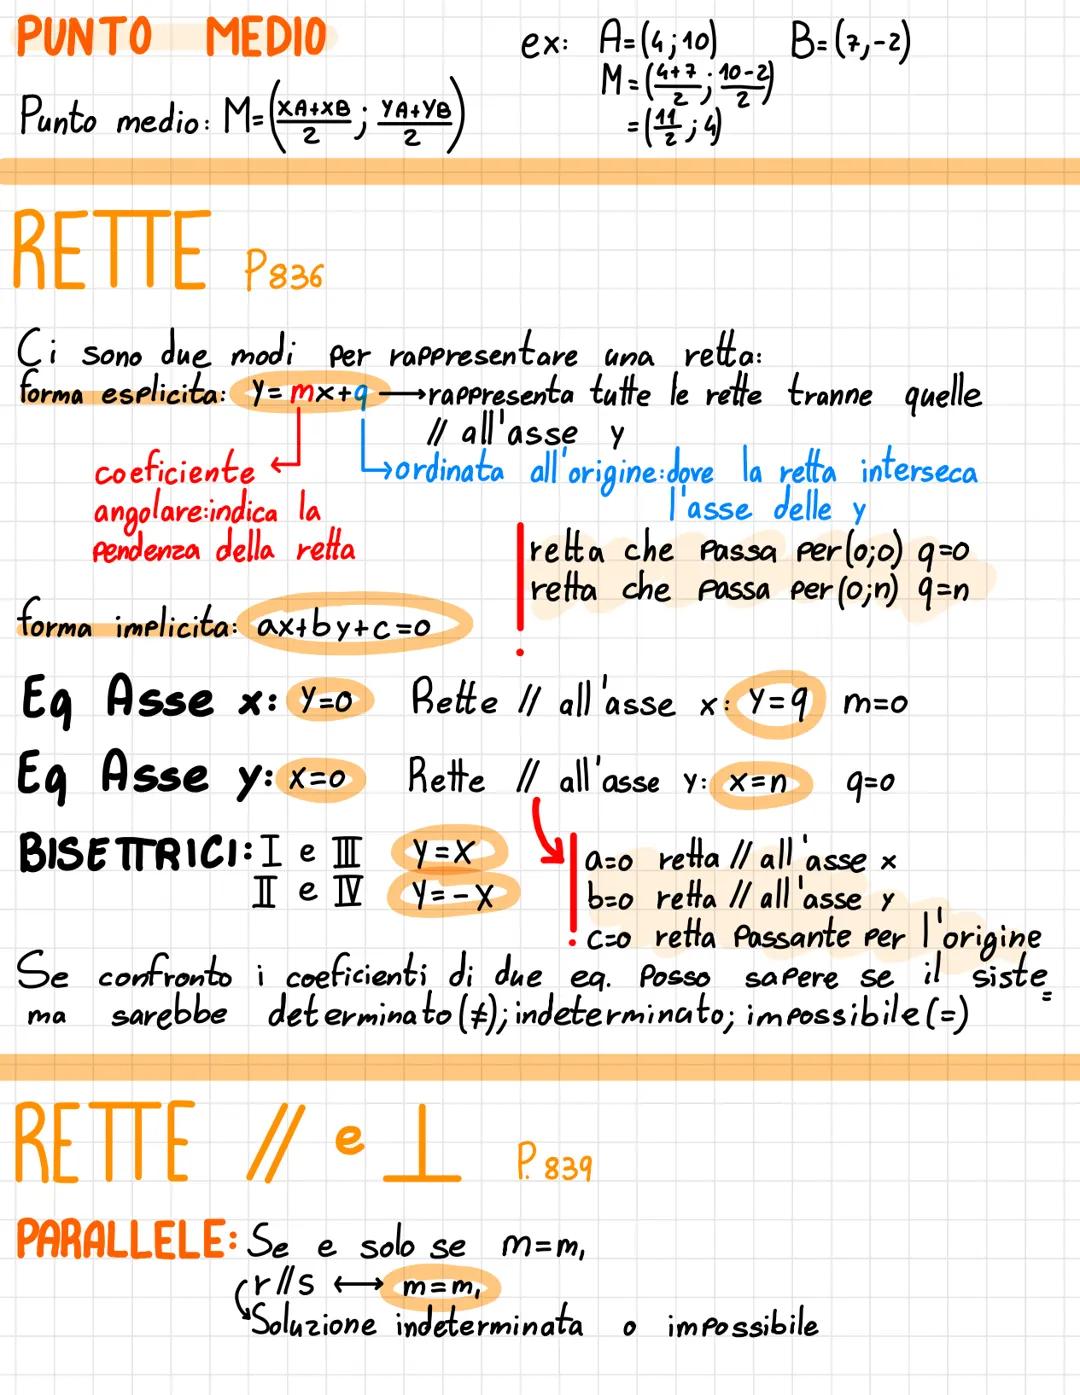 PUNTO MEDIO
ex: A=(4;10) B=(7,-2)
M=(4+7/2 ; 10-2/2)
=(11/2 ; 4)
Punto medio: M=(XA+XB/2 ; YA+YB/2)
RETTE P836
Ci sono due modi per rappresentare una retta:
forma esplicita: y=mx+q → rappresenta tutte le rette tranne quelle
// all'asse y
coeficiente
angolare:indica la
pendenza della retta
ordinata all'origine:dove la retta interseca
l'asse delle y
retta che passa per (0;0) q=0
retta che passa per (0;n) q=n
forma implicita: ax+by+c=0
Eq Asse x: y=0 Rette // all'asse x: y=q m=0
Eq Asse y: x=0 Rette // all'asse y: x=n q=0
BISETTRICI: I e III y=x
II e IV y=-x
a=0 retta // all'asse x
b=0 retta // all'asse y
c=0 retta passante per l'origine
Se confronto i coeficienti di due eq. posso sapere se il siste=
ma sarebbe determinato (≠); indeterminato; impossibile (=)
RETTE // e ⊥ P.839
PARALLELE: Se e solo se m=m,
r//s ↔ m=m,
Soluzione indeterminata o impossibile